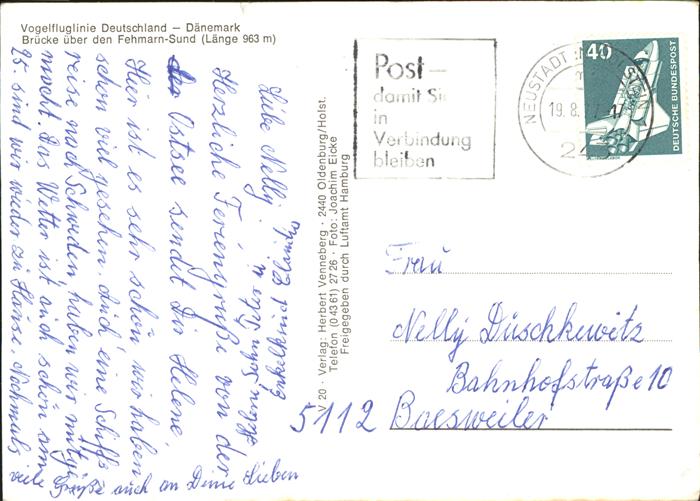 Vogelfluglinie Deutschland – Dänemark
Brücke über den Fehmarn-Sund (Länge 963 m)
Post –
damit Sie
in
Verbindung
bleiben
NEUSTADT
19.8.
24
40
DEUTSCHE BUNDESPOST
Liebe Nelly!
Herzliche Feriengrüße von der
Ostsee sendet Dir Helene,
Hier ist es sehr schön wir haben
schon viel gesehen. Auch eine Schiffs
reise nach Schweden haben wir mitge
macht. Das Wetter ist auch schön am
25. sind wir wieder zu Hause Nochmals
viele Grüße auch an Deine Lieben
V 20 · Verlag: Herbert Venneberg · 2440 Oldenburg/Holst.
Telefon (0 43 61) 27 26 · Foto: Joachim Eicke
Freigegeben durch Luftamt Hamburg
Frau
Nelly Düschkewitz
Bahnhofstraße 10
5112 Baesweiler